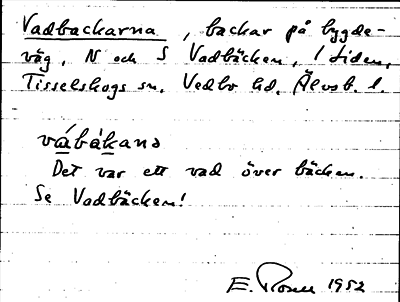 Vadbackarna, backar på bygde-
väg, N och S Vadbäcken, 1 Liden,
Tisselskogs sn, Vedbo hd, Älvsb. l.
vábàkana
Det var ett vad över bäcken.
Se Vadbäcken!
E. Rosell 1952